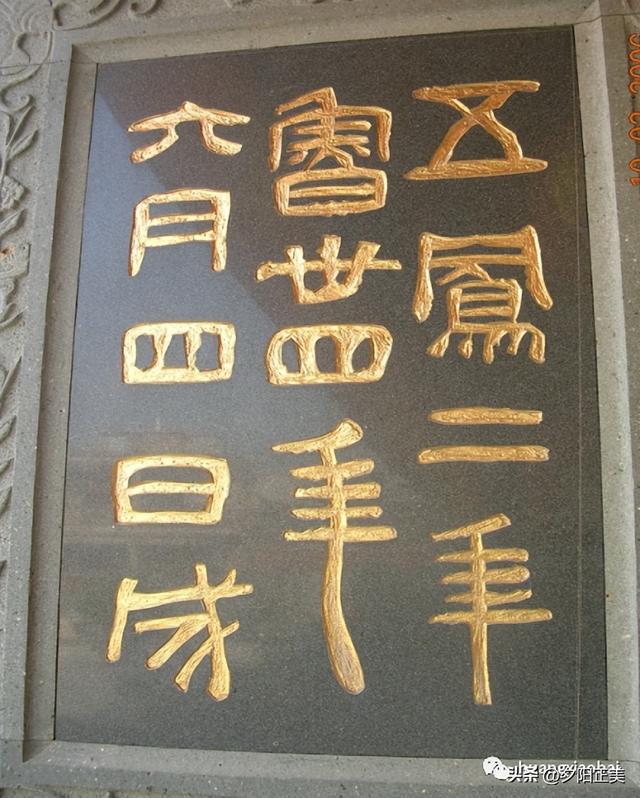 五鳳二年
魯卅四年
六月四日成
huangxiaohai
头条 @夕阳正美